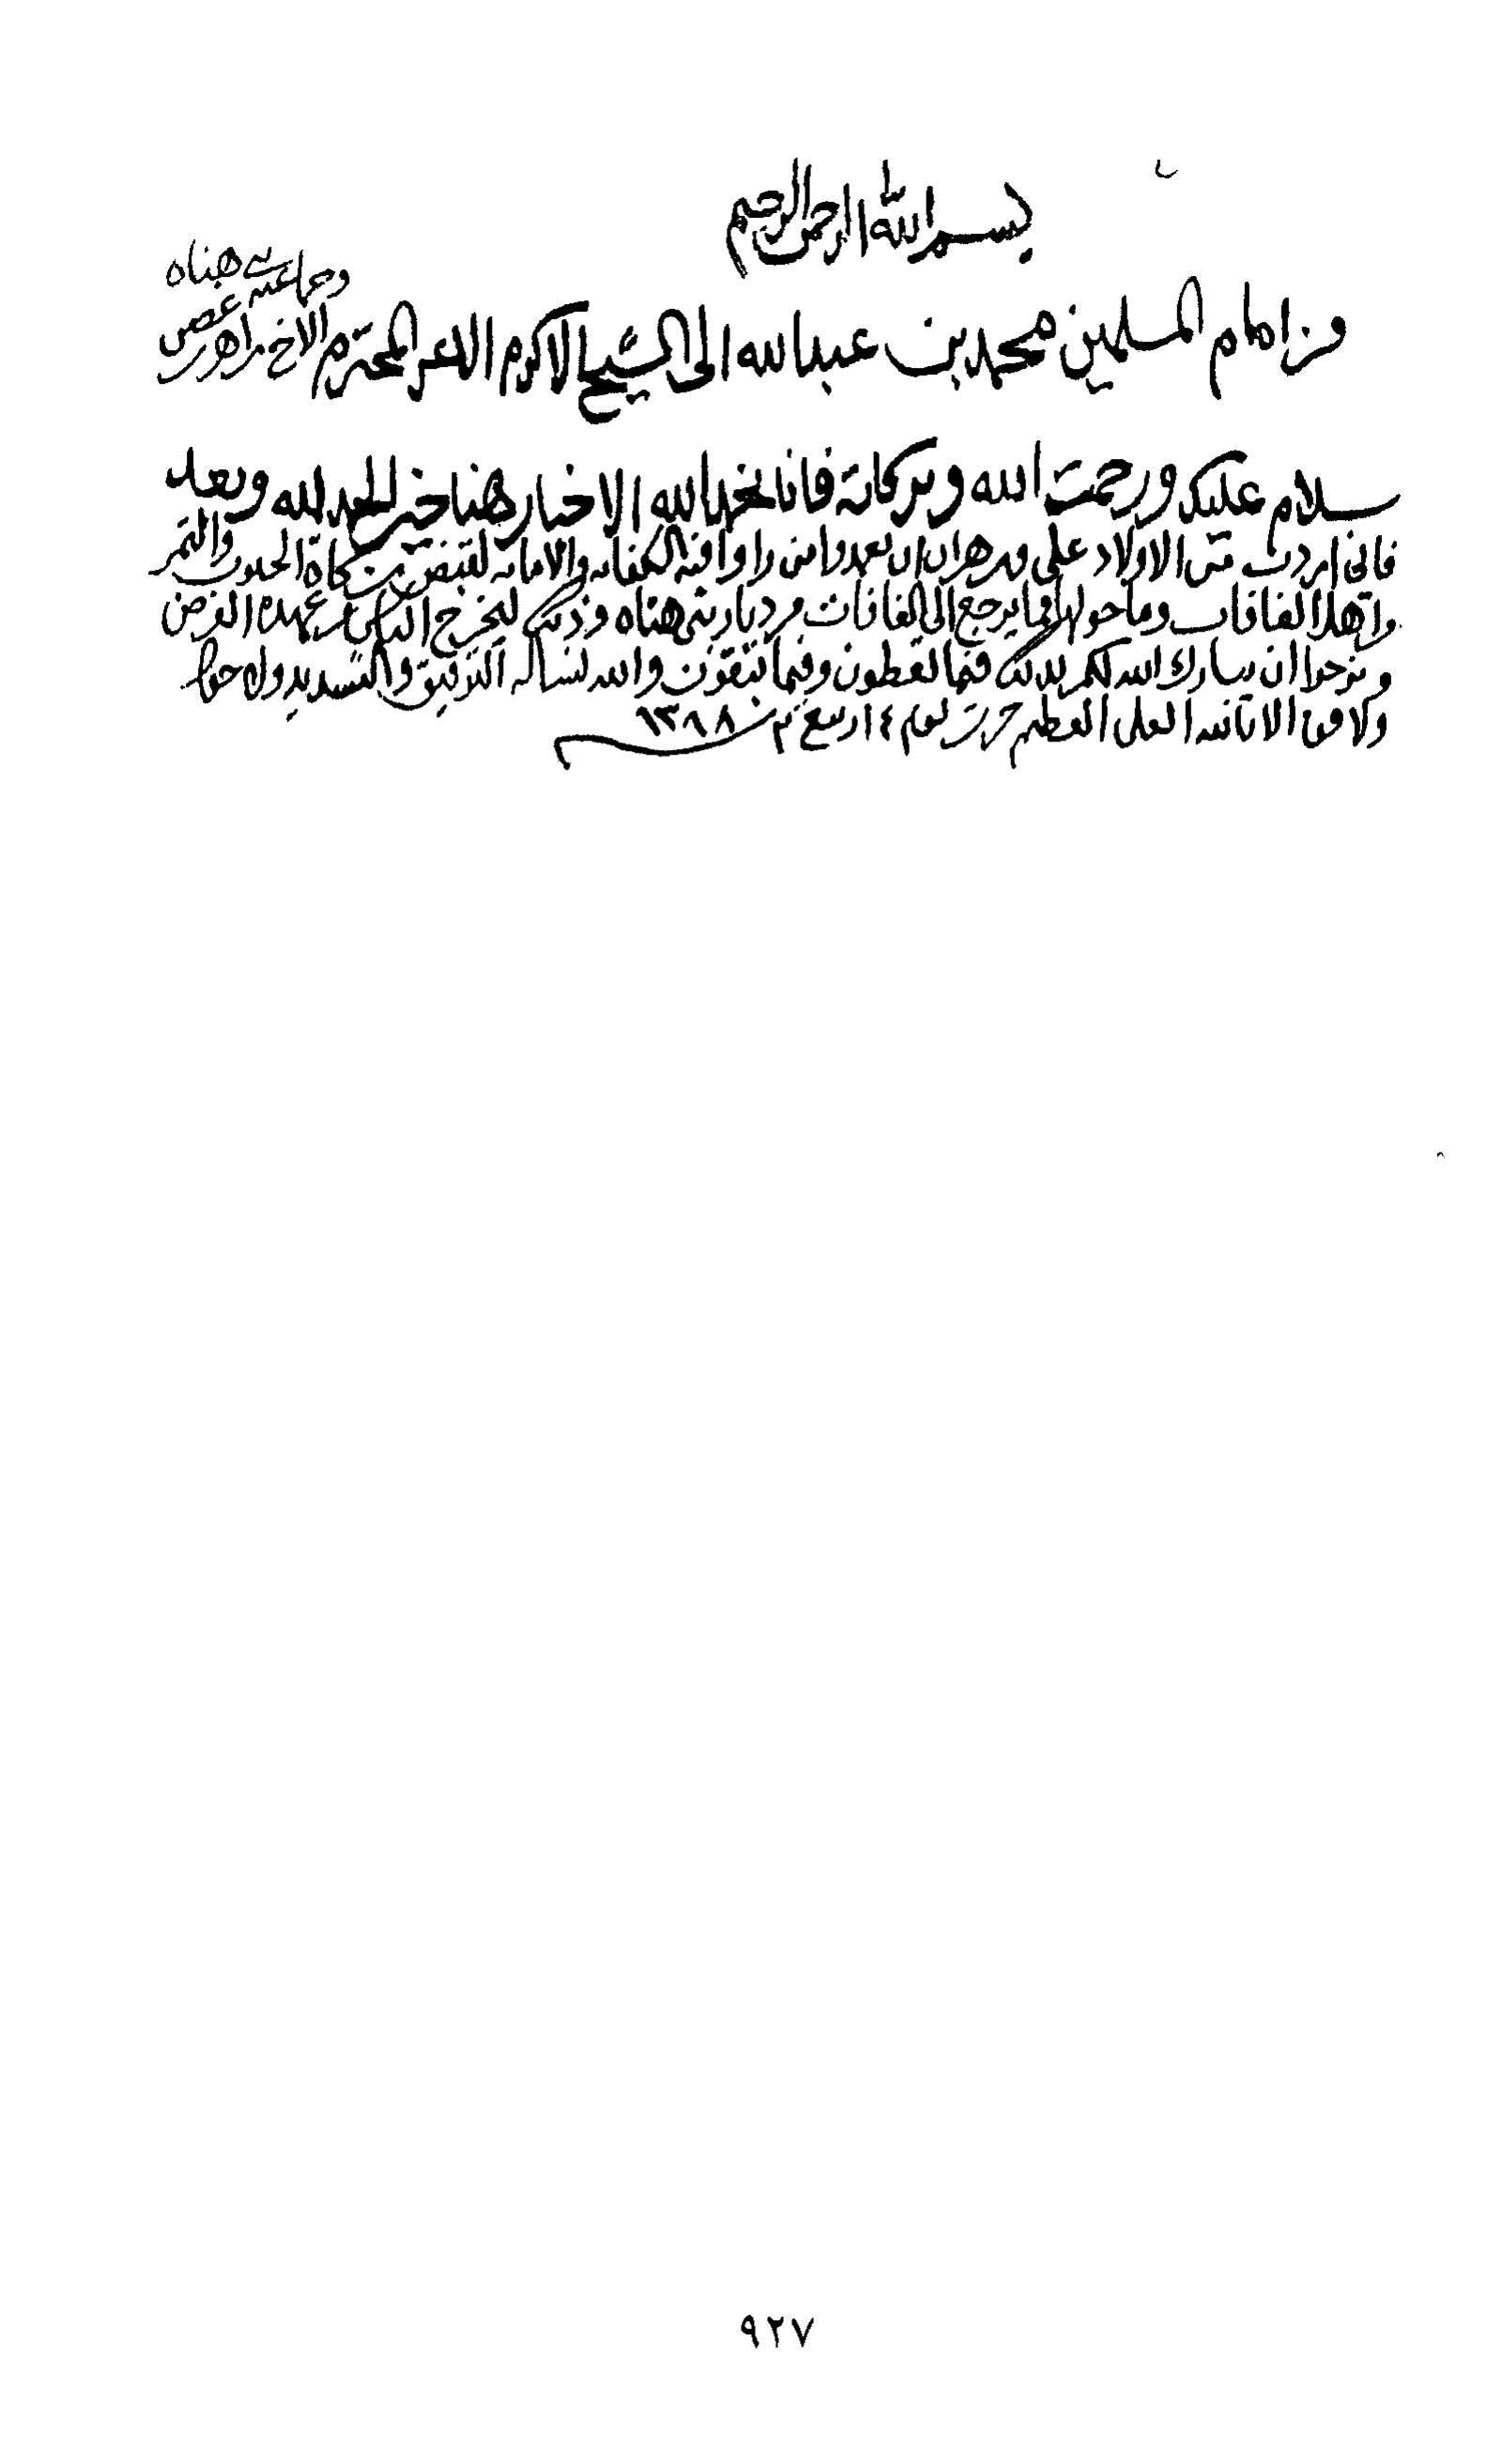 بسم الله الرحمن الرحيم
من امام المسلمين محمد بن عبدالله الى الشيخ الاكرم الاعز المحترم الاخ زاهر بن غصن
وجماعته بني هناه
سلام عليكم ورحمت الله وبركاته فانا نحمد الله الاخبار هنا خير الحمد لله وبعد
فاني اردت من الاولاد علي و هران ان من راوا فيه الكفايه والامانه لقبض زكاة الحبوب والتمر
من اهل الغافات وما حولها مما يرجع الى الغافات من ديار بني هناه وذلك ليخرج المزكي من عهدة الفرض
ونرجوا ان يبارك الله لكم بذلك فيما تعطون وفيما تبقون والله نساله التوفيق والتسديد ولا حول
ولا قوة الا بالله العلي العظيم حرر يوم ١٤ ربيع سنة ١٣٨٨
٩٢٧